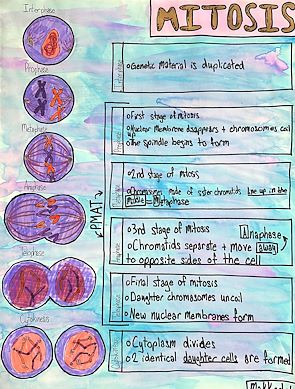 MITOSIS
Interphase
Interphase
o Genetic Material is duplicated
Prophase
Prophase
o First stage of mitosis
o Nuclear Membrane disappears + chromosomes coil
up
o The spindle begins to form
Metaphase
o 2nd stage of mitosis
o Chromosomes made of sister chromatids line up in the
Middle = Metaphase
Anaphase
← PMAT →
o 3rd stage of Mitosis
Anaphase
o Chromatids separate + move away
to opposite sides of the cell
Telophase
o Final stage of mitosis
o Daughter chromosomes uncoil
o New nuclear membranes form
Cytokinesis
o Cytoplasm divides
o 2 identical daughter cells are formed